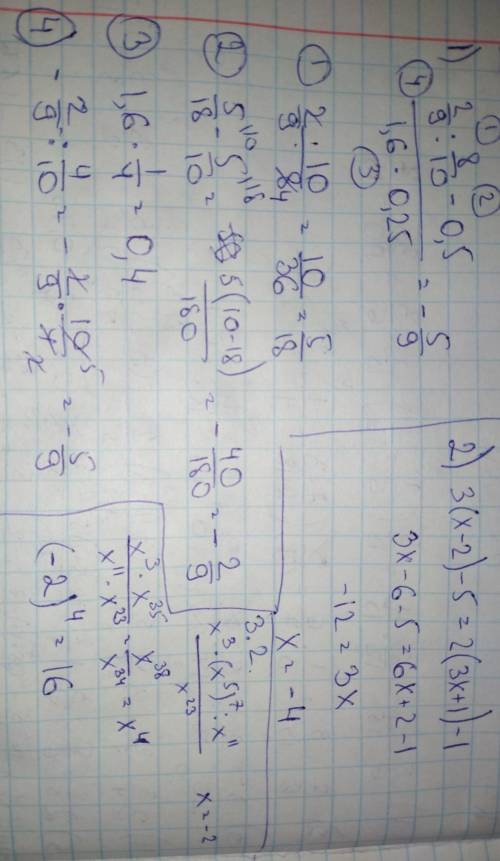 1) ① ②
④ (2/9 : 8/10 - 0,5) / (1,6 · 0,25) = - 5/9
③
① 2/9 · 10/8 4 = 10/36 = 5/18
② 5/18 ^10 - 5/10 ^18 = 5(10-18)/180 = - 40/180 = - 2/9
③ 1,6 · 1/4 = 0,4
④ - 2/9 : 4/10 = - 2/9 · 10/4 5 2 = - 5/9
2) 3(x-2)-5=2(3x+1)-1
3x-6-5=6x+2-1
-12=3x
x=-4
3.2.
x^3 · (x^5)^7 : x^11 / x^23 x=-2
x^3 · x^35 / x^11 · x^23 = x^38 / x^34 = x^4
(-2)^4 = 16